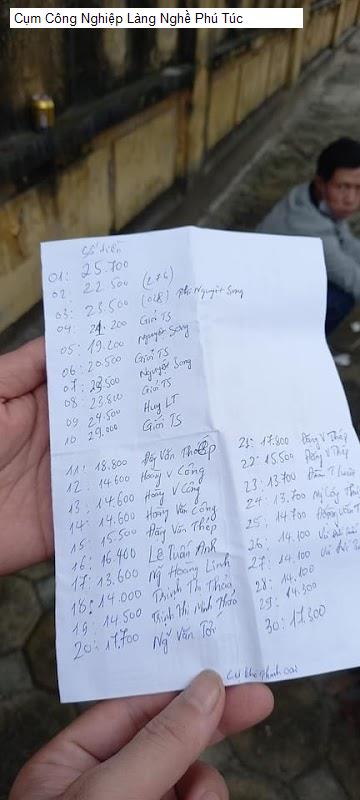 Cụm Công Nghiệp Làng Nghề Phú Túc
Số tiền
01: 25.700
02: 22.500 (276)
03: 23.500 (048) Nguyệt Song
04: 21.200 Giới TS
05: 19.200 Nguyệt Song
06: 20.500 Giới TS
07: 22.500 Nguyệt Song
08: 23.800 Giới TS
09 24.500 Huy LT
10 29.000 Giới TS
11: 18.800 Văn Thép
12: 14.600 Hoàng V Công
13: 14.600 Hoàng V Công
14: 14.600 Hoàng Văn Công
15: 15.500 Văn Thép
16: 16.400 Lê Tuấn Anh
17: 13.600 Ng Hoàng Linh
18: 14.000 Trịnh Th Thảo
19: 14.500 Trịnh Thị Minh Thảo
20: 17.700 Ng Văn Tới
21: 17.800 V Thép
22: 15.500 V Thép
23: 13.700
24: 13.700
25: 14.700
26: 14.100
27: 14.100
28: 14.100
29: 14.300
30: 17.300